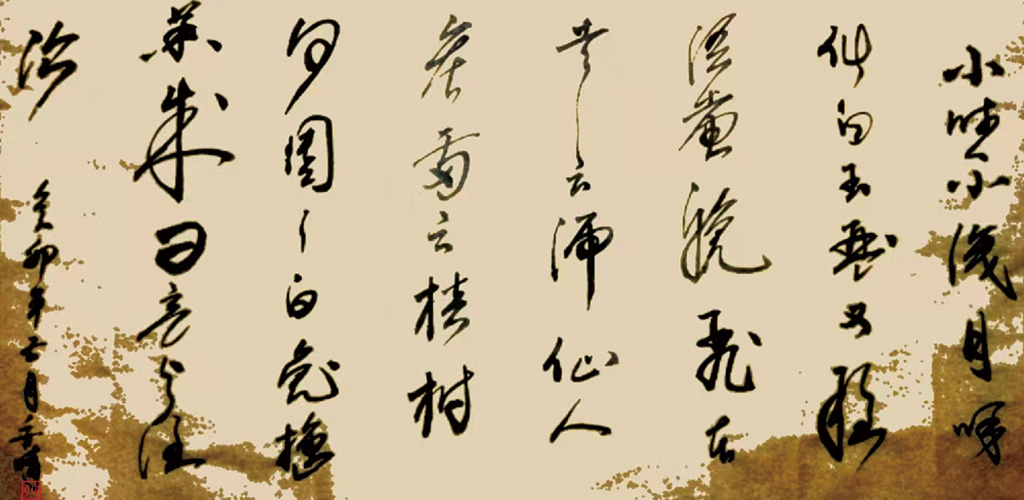 小時不識月呼
作白玉盤又疑
瑶臺鏡飛在
青云端仙人
垂兩足桂樹
何團々白兔搗
藥成問言與誰
餐
癸卯年七月